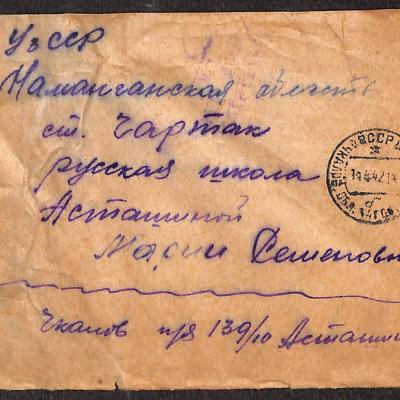 УзССР
Наманганская область
ст. Чартак
русская школа
Асташиной
Марии Семеновн
Чкалов п/я 139/10 Асташи
СССР
14.6.42.14